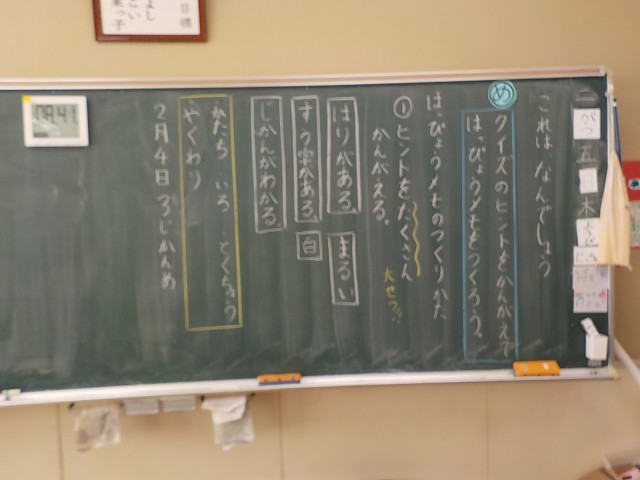 これは、なんでしょう
め
クイズのヒントをかんがえて
は、ぴょうメモをつくろう。
は、ぴょうメモのつくりかた
①ヒントをたくさん
かんがえる。
大せつ!!
はりがある。
まるい
すう字がある。
白
じかんがわかる。
かたち いろ とくちょう
やくわり
2月4日 3じかんめ